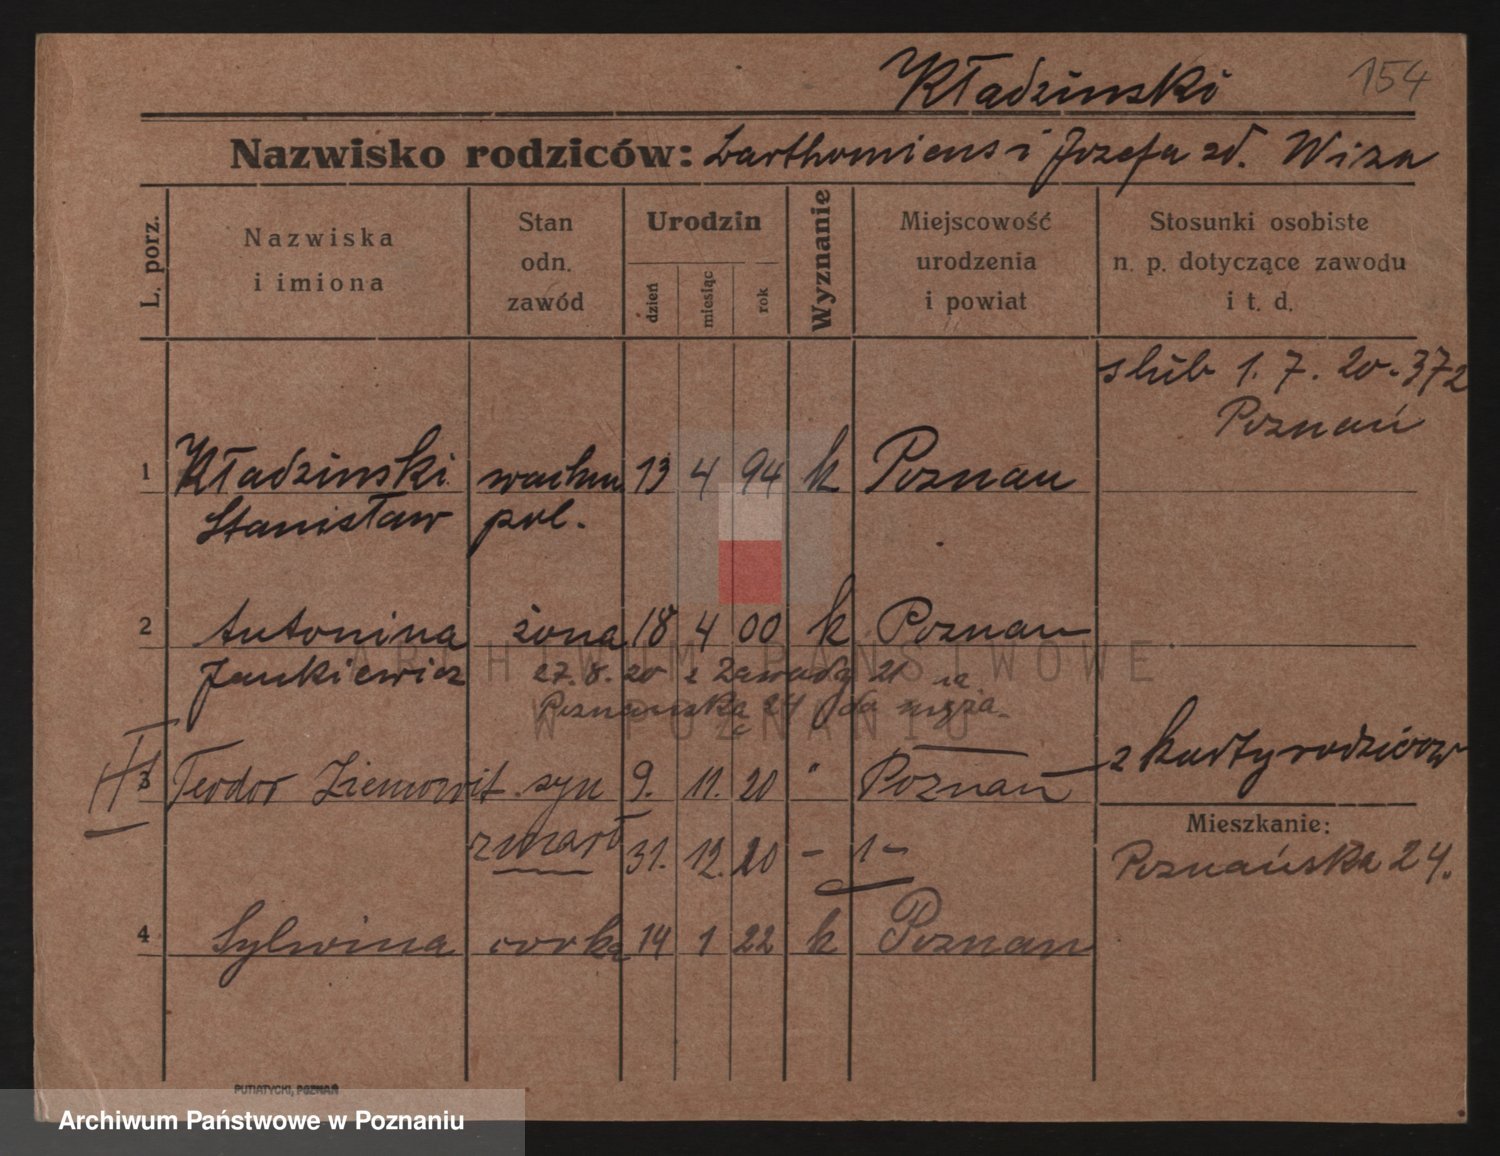 Kładzinski 154
Nazwisko rodziców: Barthomieus i Józefa zd. Wiza
L. porz.
Nazwiska i imiona
Stan odn. zawód
Urodzin
dzień
miesiąc
rok
Wyznanie
Miejscowość urodzenia i powiat
Stosunki osobiste n. p. dotyczące zawodu i t. d.
slub 1. 7. 20. 372
Poznań
1 Kładzinski wachm. 13 4 94 k Poznan
Stanisław pol.
2 Antonina żona 18 4 00 k Poznan
Jankiewicz 27. 8. 20 z Zawady 21 na
Poznańska 24 do męża
z karty rodziców
3 Teodor Ziemowit syn 9. 11. 20 " Poznań
Mieszkanie:
zmarł 31. 12. 20 - 1 -
Poznańska 24.
4 Sylwina corka 14 1 22 k Poznan
PUTIATYCKI, POZNAŃ
ARCHIWUM PAŃSTWOWE
W POZNANIU
Archiwum Państwowe w Poznaniu